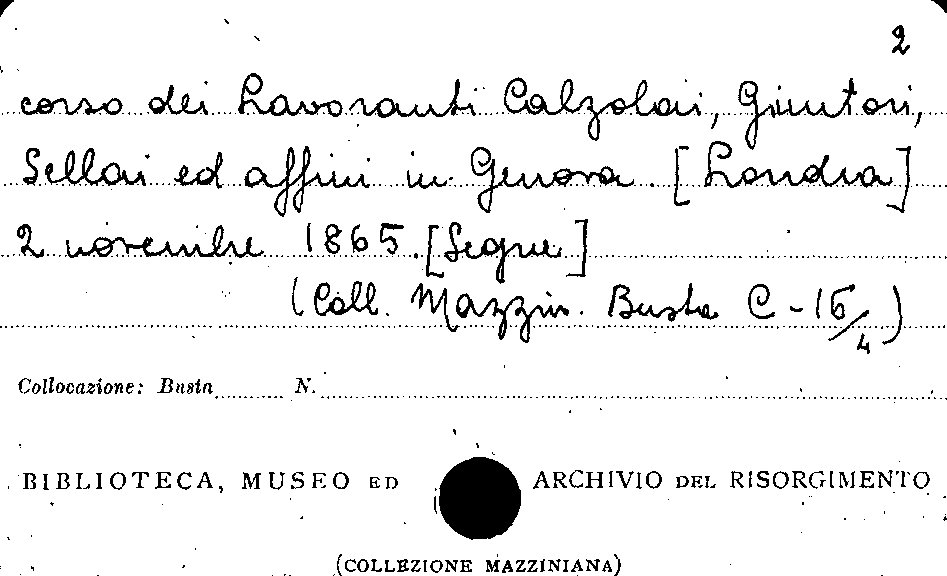 2
corso dei Lavoranti Calzolai, Giuntori,
Sellai ed affini in Genova. [Londra]
2 novembre 1865. [Segue]
(Coll. Mazzin. Busta C - 15/4)
Collocazione: Busta ........ N. ........
BIBLIOTECA, MUSEO ED ARCHIVIO DEL RISORGIMENTO
(COLLEZIONE MAZZINIANA)